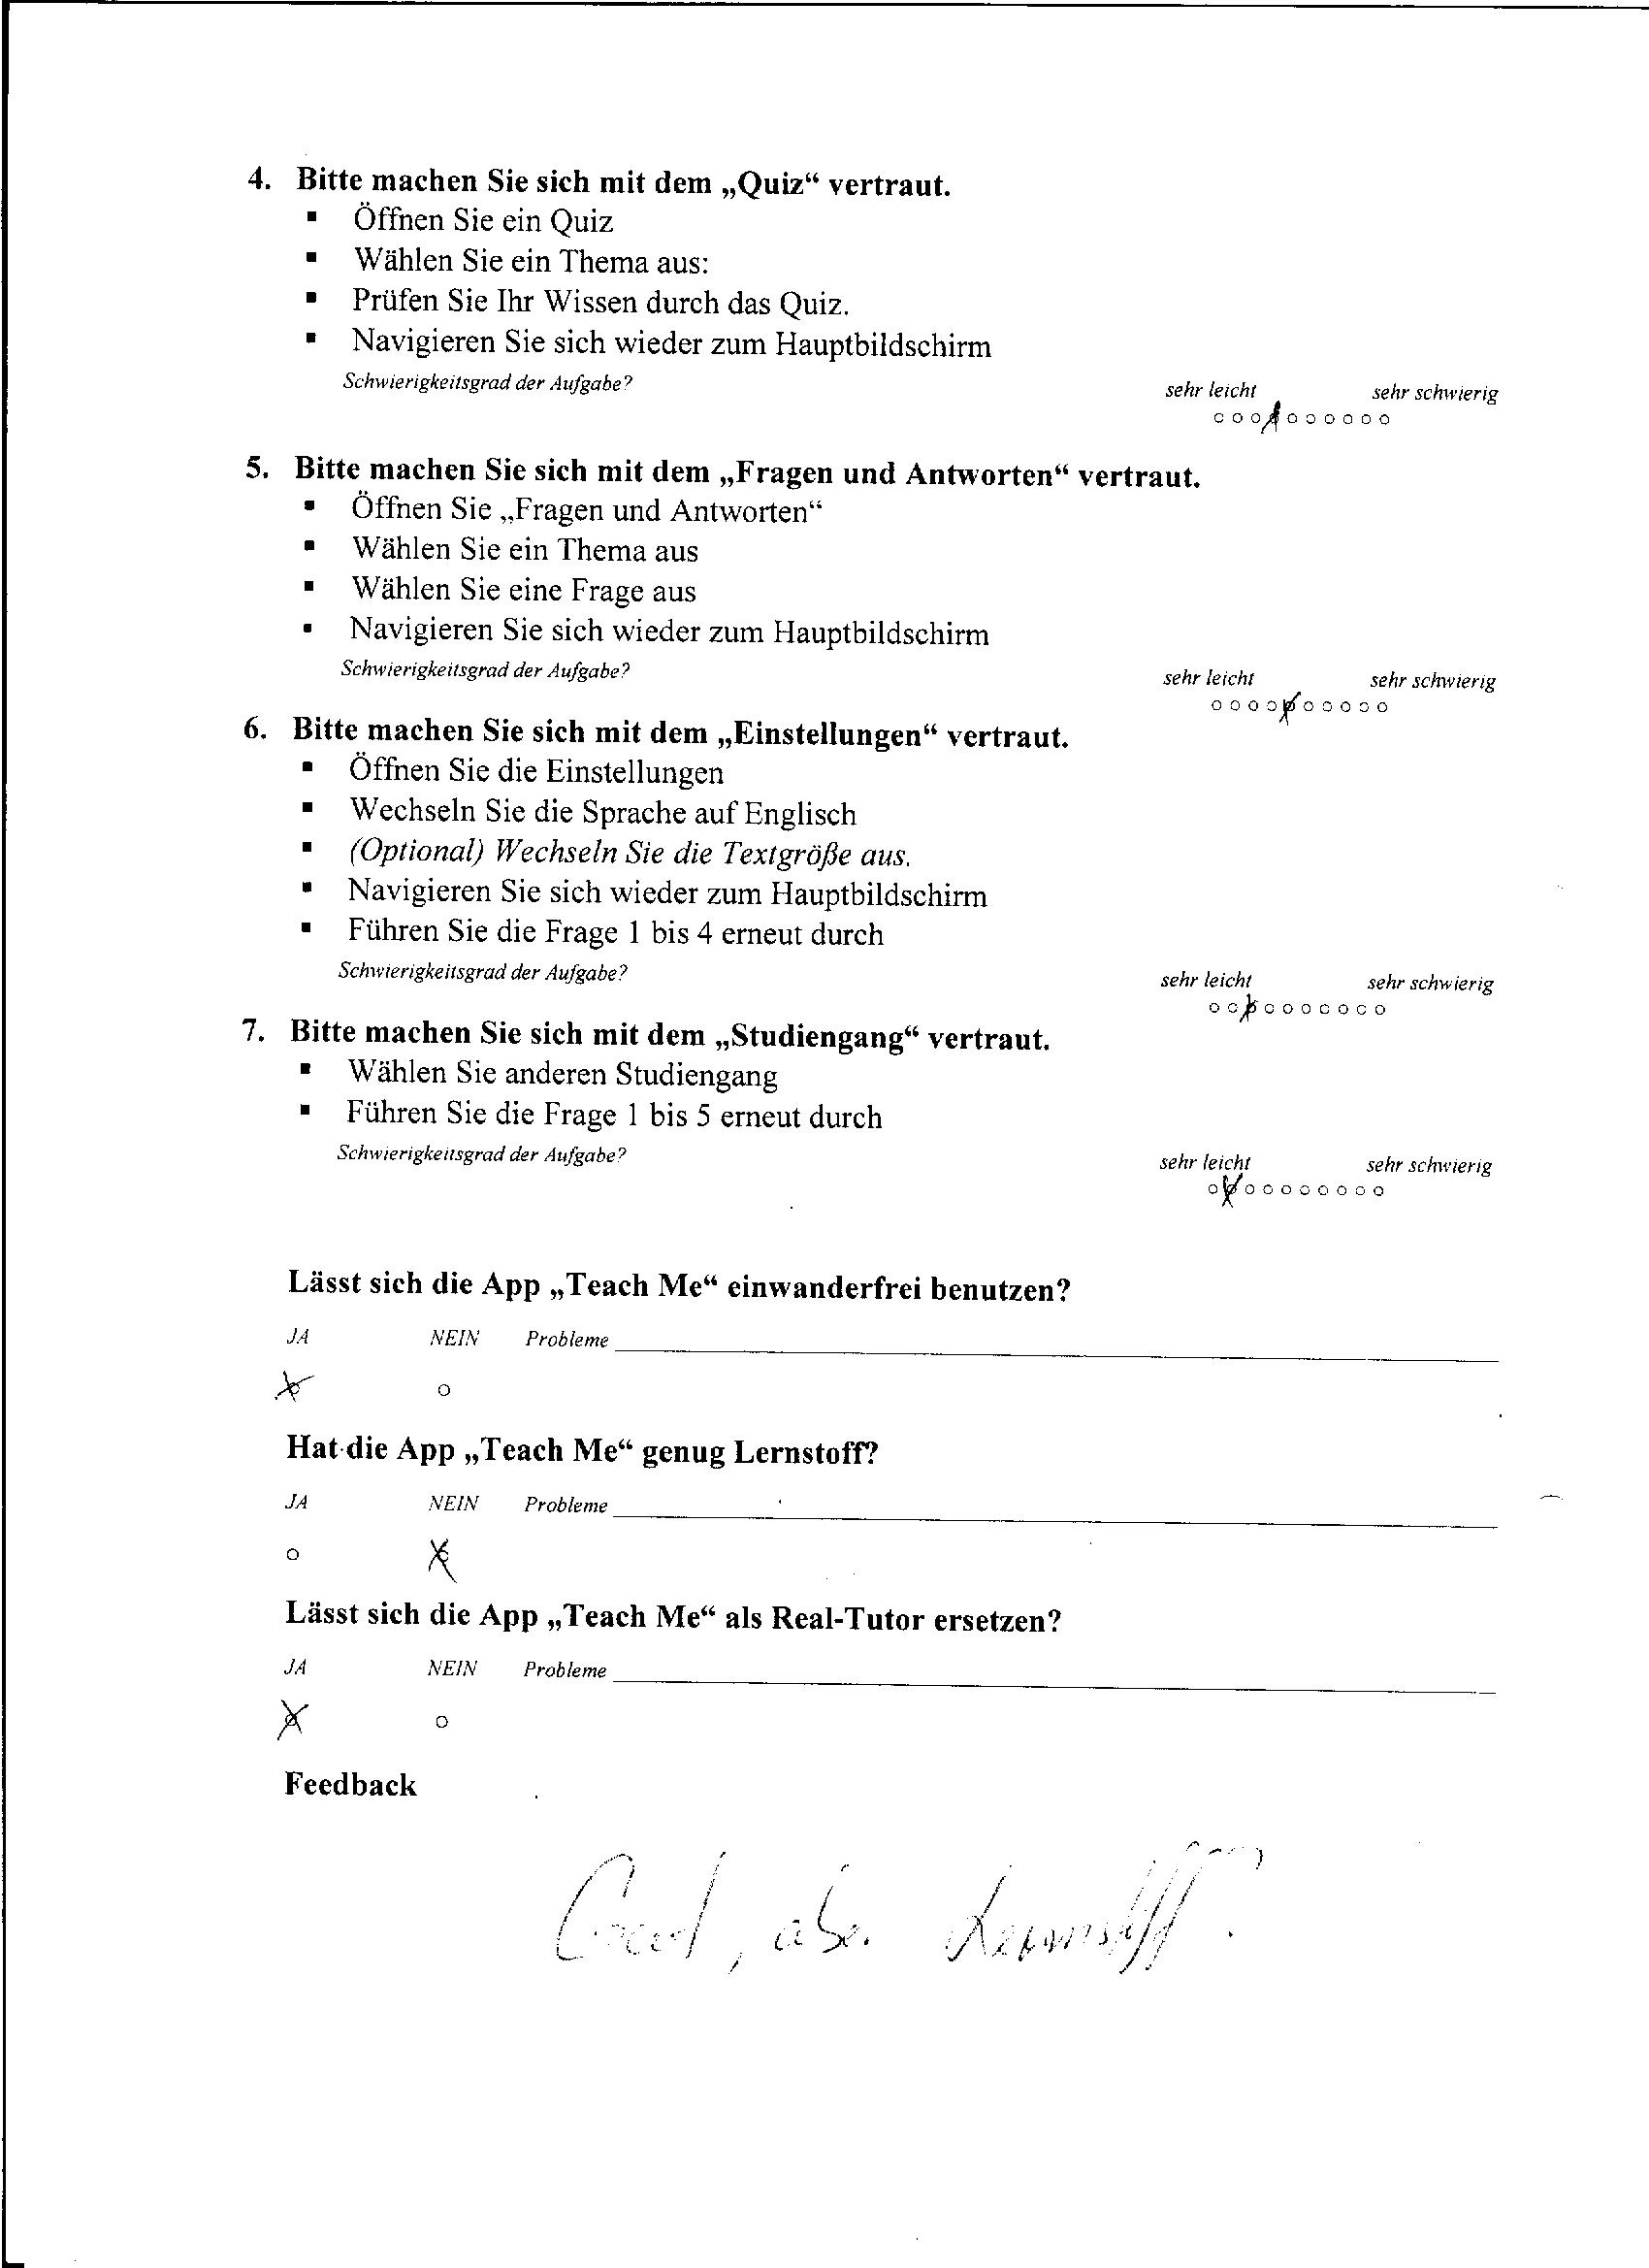 4. Bitte machen Sie sich mit dem „Quiz“ vertraut.
▪ Öffnen Sie ein Quiz
▪ Wählen Sie ein Thema aus:
▪ Prüfen Sie Ihr Wissen durch das Quiz.
▪ Navigieren Sie sich wieder zum Hauptbildschirm
Schwierigkeitsgrad der Aufgabe? sehr leicht sehr schwierig
5. Bitte machen Sie sich mit dem „Fragen und Antworten“ vertraut.
▪ Öffnen Sie „Fragen und Antworten“
▪ Wählen Sie ein Thema aus
▪ Wählen Sie eine Frage aus
▪ Navigieren Sie sich wieder zum Hauptbildschirm
Schwierigkeitsgrad der Aufgabe? sehr leicht sehr schwierig
6. Bitte machen Sie sich mit dem „Einstellungen“ vertraut.
▪ Öffnen Sie die Einstellungen
▪ Wechseln Sie die Sprache auf Englisch
▪ (Optional) Wechseln Sie die Textgröße aus.
▪ Navigieren Sie sich wieder zum Hauptbildschirm
▪ Führen Sie die Frage 1 bis 4 erneut durch
Schwierigkeitsgrad der Aufgabe? sehr leicht sehr schwierig
7. Bitte machen Sie sich mit dem „Studiengang“ vertraut.
▪ Wählen Sie anderen Studiengang
▪ Führen Sie die Frage 1 bis 5 erneut durch
Schwierigkeitsgrad der Aufgabe? sehr leicht sehr schwierig
Lässt sich die App „Teach Me“ einwanderfrei benutzen?
JA NEIN Probleme
Hat die App „Teach Me“ genug Lernstoff?
JA NEIN Probleme
Lässt sich die App „Teach Me“ als Real-Tutor ersetzen?
JA NEIN Probleme
Feedback
, aber Lernstoff.